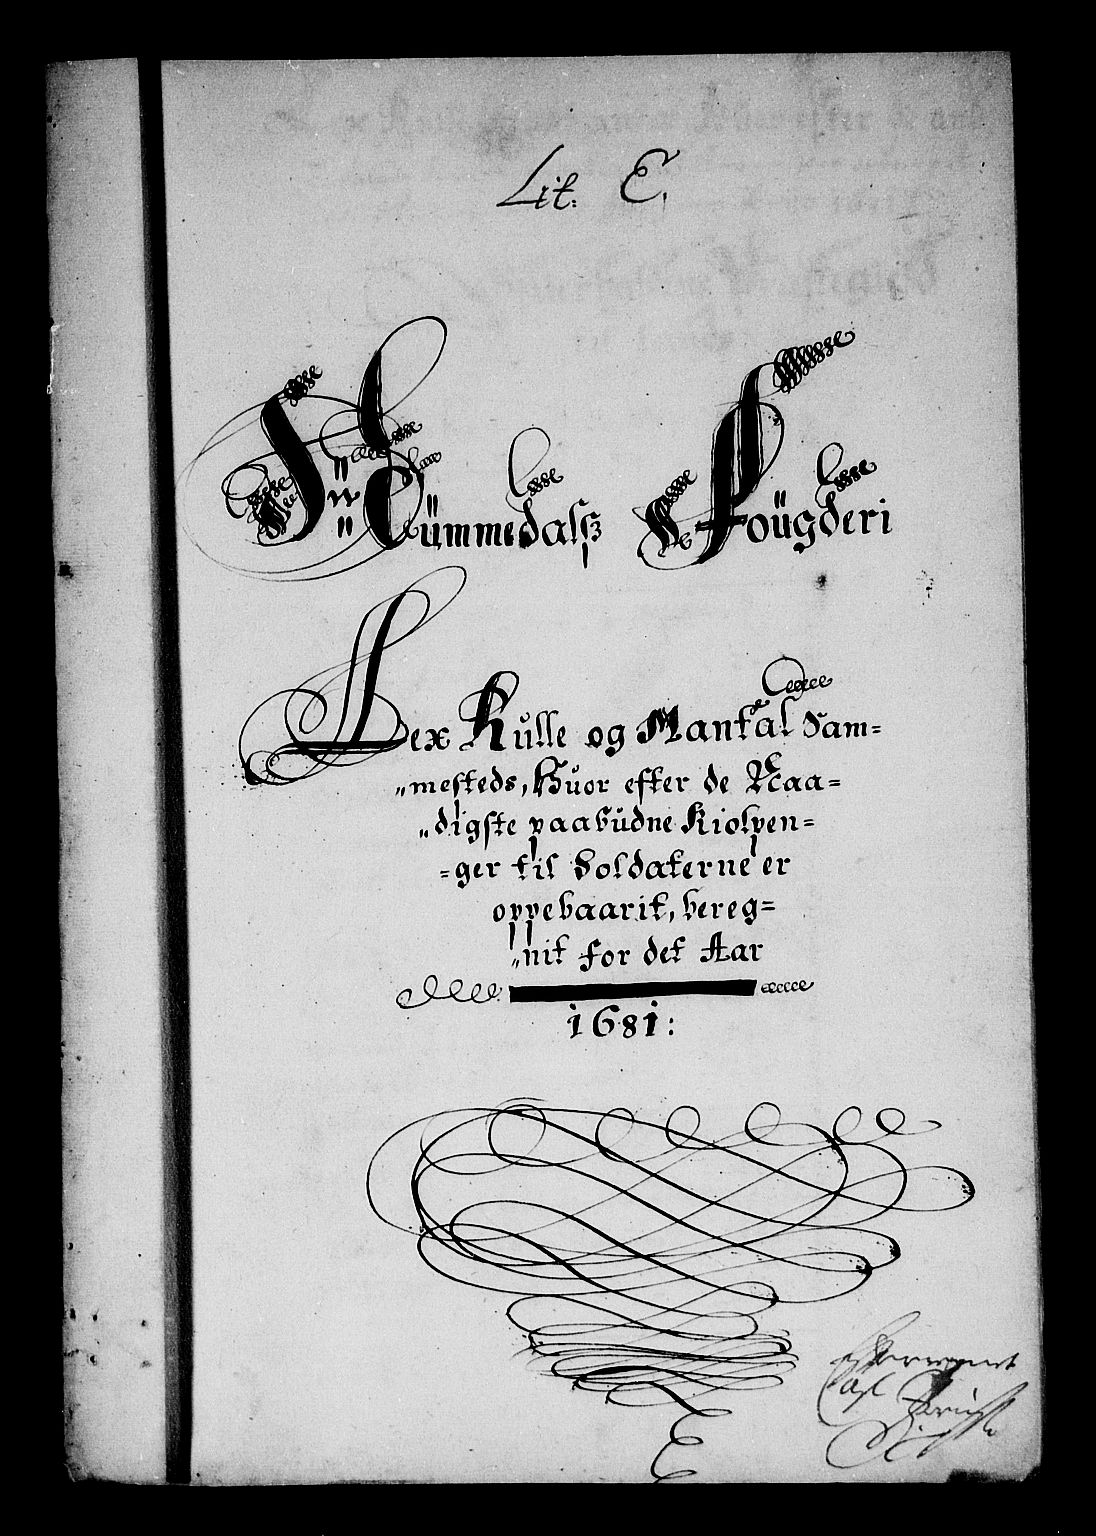 Lit: E.
Nümmedalsz Foügderi
Lex Rulle og Mantal Sam=
„mesteds, Huor efter de Naa=
„digste paabudne Kiolpen=
=ger til Soldaterne er
oppebaarit, bereg=
„nit for det Aar
1681: